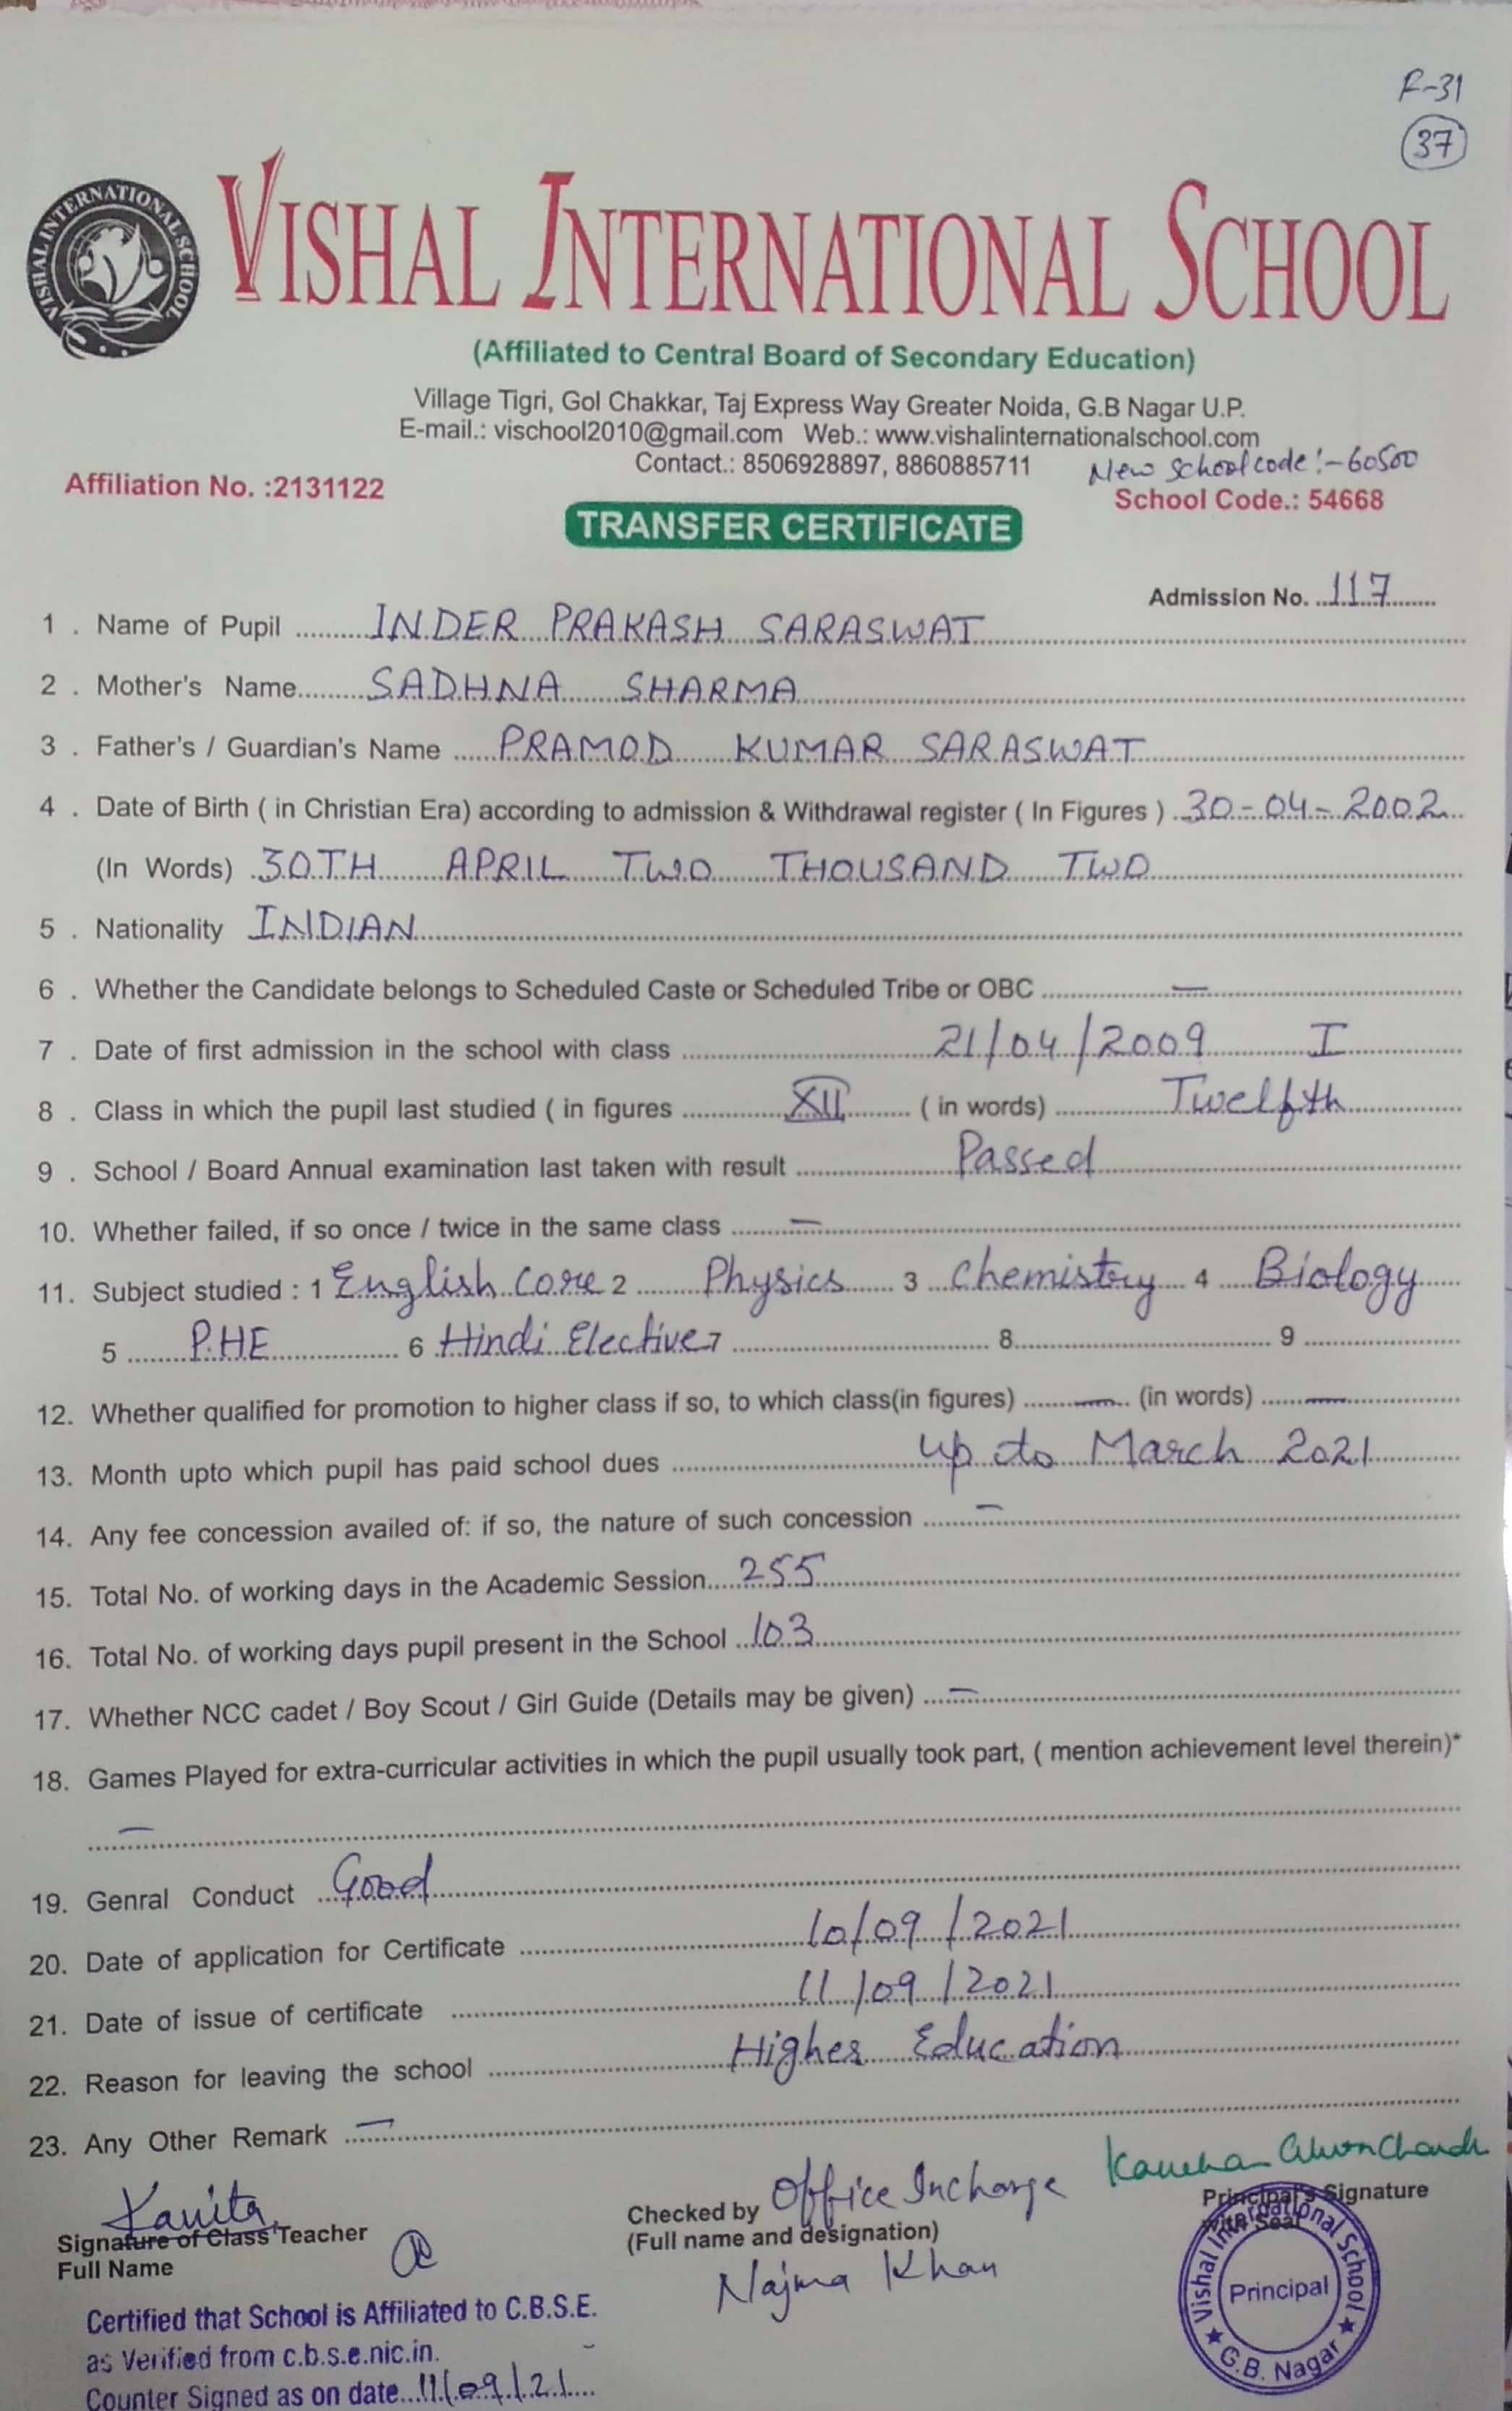 F-31
37
VISHAL INTERNATIONAL SCHOOL
VISHAL INTERNATIONAL SCHOOL
(Affiliated to Central Board of Secondary Education)
Village Tigri, Gol Chakkar, Taj Express Way Greater Noida, G.B Nagar U.P.
E-mail.: vischool2010@gmail.com Web.: www.vishalinternationalschool.com
Contact.: 8506928897, 8860885711 New School code:-60500
Affiliation No. :2131122 School Code.: 54668
TRANSFER CERTIFICATE
Admission No. 117
1 . Name of Pupil INDER PRAKASH SARASWAT
2 . Mother's Name SADHNA SHARMA
3 . Father's / Guardian's Name PRAMOD KUMAR SARASWAT
4 . Date of Birth ( in Christian Era) according to admission & Withdrawal register ( In Figures ) 30-04-2002
(In Words) 30TH APRIL TWO THOUSAND TWO
5 . Nationality INDIAN
6 . Whether the Candidate belongs to Scheduled Caste or Scheduled Tribe or OBC —
7 . Date of first admission in the school with class 21/04/2009 I
8 . Class in which the pupil last studied ( in figures XII ( in words) Twelfth
9 . School / Board Annual examination last taken with result Passed
10. Whether failed, if so once / twice in the same class —
11. Subject studied : 1 English Core 2 Physics 3 Chemistry 4 Biology
5 P.H.E 6 Hindi Elective 7 8 9
12. Whether qualified for promotion to higher class if so, to which class(in figures) — (in words) —
13. Month upto which pupil has paid school dues up to March 2021
14. Any fee concession availed of: if so, the nature of such concession —
15. Total No. of working days in the Academic Session 255
16. Total No. of working days pupil present in the School 103
17. Whether NCC cadet / Boy Scout / Girl Guide (Details may be given) —
18. Games Played for extra-curricular activities in which the pupil usually took part, ( mention achievement level therein)*
—
19. Genral Conduct Good
20. Date of application for Certificate 10/09/2021
21. Date of issue of certificate 11/09/2021
22. Reason for leaving the school Higher Education
23. Any Other Remark —
Kavita
Signature of Class Teacher
Full Name
Checked by Office Incharge
(Full name and designation)
Najma Khan
Principal's Signature
with Seal
Vishal International School
Principal
G.B. Nagar
Certified that School is Affiliated to C.B.S.E.
as Verified from c.b.s.e.nic.in.
Counter Signed as on date 11/09/21